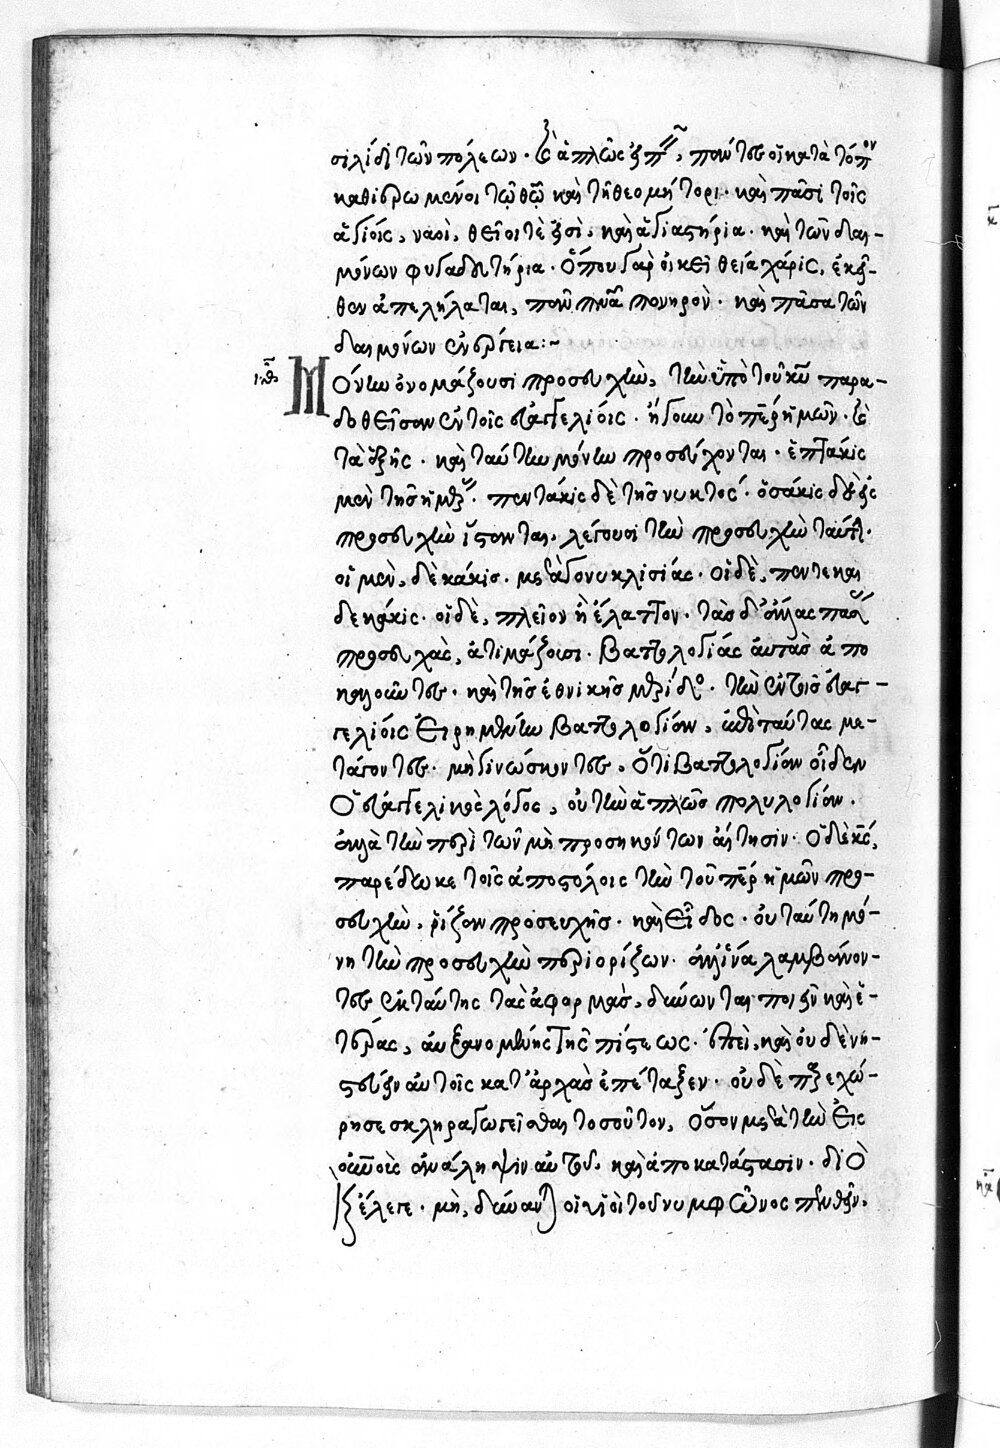 σιλίδι τῶν πόλεων· καὶ ἁπλῶς, πάντες οἱ κατὰ τόπον
καθιερωμένοι τῷ θῷ καὶ τῇ θεομήτορι· καὶ πᾶσι τοῖς
ἁγίοις, ναοὶ, θεῖοί τέ εἰσι, καὶ ἁγιαστήρια· καὶ τῶν δαι-
μόνων φυγαδευτήρια· Ὅπου γὰρ οἰκεῖ θεία χάρις, ἐκεῖ-
θεν ἀπελήλαται, πᾶν πνα πονηρὸν· καὶ πᾶσα τῶν
δαιμόνων ἐνέργεια:~
ιθ Μόνην ὀνομάζουσι προσευχὴν, τὴν ὑπὸ τοῦ κυ παρα-
δοθεῖσαν ἐν τοῖς εὐαγγελίοις· ἤγουν τὸ περ ἡμῶν· καὶ
τὰ ἑξῆς· καὶ ταύτην μόνην προσεύχονται· ἑπτάκις
μὲν τῆς ἡμέρας· πεντάκις δὲ τῆς νυκτός· ὁσάκις δ' εἰς
προσευχὴν ἵστανται, λέγουσι τὴν προσευχὴν ταύτην·
οἱ μὲν, δεκάκις· μετὰ γονυκλισίας· οἱ δὲ, πεντεκαι
δεκάκις· οἱ δὲ, πλεῖον ἢ ἔλαττον· τὰς δ' ἄλλας πάσας
προσευχὰς, ἀτιμάζουσι· βαττολογίας αὐτὰς ἀπο
καλοῦντες· καὶ τῆς ἐθνικῆς μερίδος· τὴν ἐν τοῖς εὐαγ-
γελίοις εἰρημένην βαττολογίαν, εἰς ταύτας με-
τάγοντες· μὴ γινώσκοντες, ὅτι βαττολογίαν οἶδεν
ὁ εὐαγγελικὸς λόγος, οὐ τὴν ἁπλῶς πολυλογίαν·
ἀλλὰ τὴν περὶ τῶν μὴ προσηκόντων αἴτησιν· Ὁ δὲ κς,
παρέδωκε τοῖς ἀποστόλοις τὴν τοῦ περ ἡμῶν προ-
σευχὴν, ῥίζαν προσευχῆς· καὶ εἶδος· οὐ ταύτῃ μό-
νῃ τὴν προσευχὴν περιορίζων· ἀλλ' ἵνα λαμβάνον-
τες ἐκ ταύτης τὰς ἀφορμὰς, δύνωνται ποιεῖν καὶ ἑ-
τέρας, αὐξανομένης τῆς πίστεως· ἐπεὶ, καὶ οὐδὲ νη-
στεύειν αὐτοῖς κατ' ἀρχὰς ἐπέταξεν· οὐδὲ παρεχώ-
ρησε σκληραγωγεῖσθαι τοσοῦτον, ὅσον μετὰ τὴν εἰς
οὐνοὺς ἀνάληψιν αὐτοῦ, καὶ ἀποκατάστασιν· διὸ
ἔλεγε· μὴ, δύναν οἱ υἱοὶ τοῦ νυμφῶνος πενθεῖν,